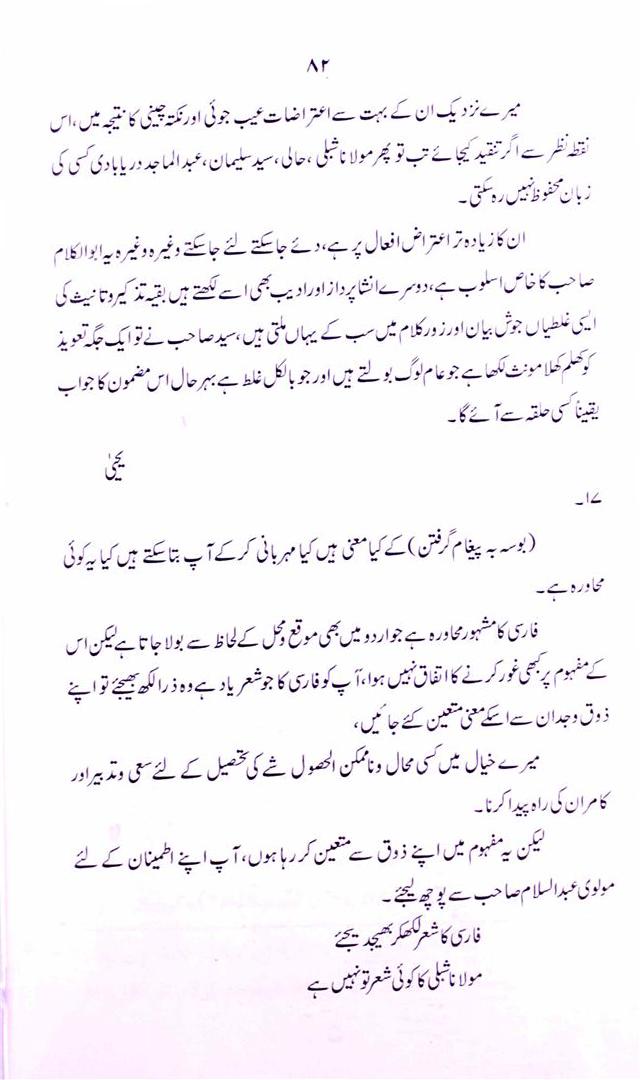 ۸۲
میرے نزدیک ان کے بہت سے اعتراضات عیب جوئی اور نکتہ چینی کا نتیجہ میں، اس
نقطہ نظر سے اگر تنقید کیجائے تب تو پھر مولانا شبلی، حالی، سید سلیمان، عبدالماجد دریابادی کسی کی
زبان محفوظ نہیں رہ سکتی۔
ان کا زیادہ تر اعتراض افعال پر ہے، دئے جاسکتے لئے جاسکتے وغیرہ وغیرہ یہ ابوالکلام
صاحب کا خاص اسلوب ہے، دوسرے انشا پرداز اور ادیب بھی اسے لکھتے ہیں بقیہ تذکیر و تانیث کی
ایسی غلطیاں جوش بیان اور زور کلام میں سب کے یہاں ملتی ہیں، سید صاحب نے تو ایک جگہ تعویذ
کو کھلم کھلا مونث لکھا ہے جو عام لوگ بولتے ہیں اور جو بالکل غلط ہے بہر حال اس مضمون کا جواب
یقیناً کسی حلقہ سے آئے گا۔
یحییٰ
۱۷۔
(بوسہ بہ پیغام گرفتن) کے کیا معنی ہیں کیا مہربانی کر کے آپ بتا سکتے ہیں کیا یہ کوئی
محاورہ ہے۔
فارسی کا مشہور محاورہ ہے جو اردو میں بھی موقع و محل کے لحاظ سے بولا جاتا ہے لیکن اس
کے مفہوم پر کبھی غور کرنے کا اتفاق نہیں ہوا، آپ کو فارسی کا جو شعر یاد ہے وہ ذرا لکھ بھیجئے تو اپنے
ذوق وجدان سے اسکے معنی متعین کئے جائیں،
میرے خیال میں کسی محال و ناممکن الحصول شے کی تحصیل کے لئے سعی و تدبیر اور
کامران کی راہ پیدا کرنا۔
لیکن یہ مفہوم میں اپنے ذوق سے متعین کر رہا ہوں، آپ اپنے اطمینان کے لئے
مولوی عبدالسلام صاحب سے پوچھ لیجئے۔
فارسی کا شعر لکھکر بھیجدیجئے
مولانا شبلی کا کوئی شعر تو نہیں ہے